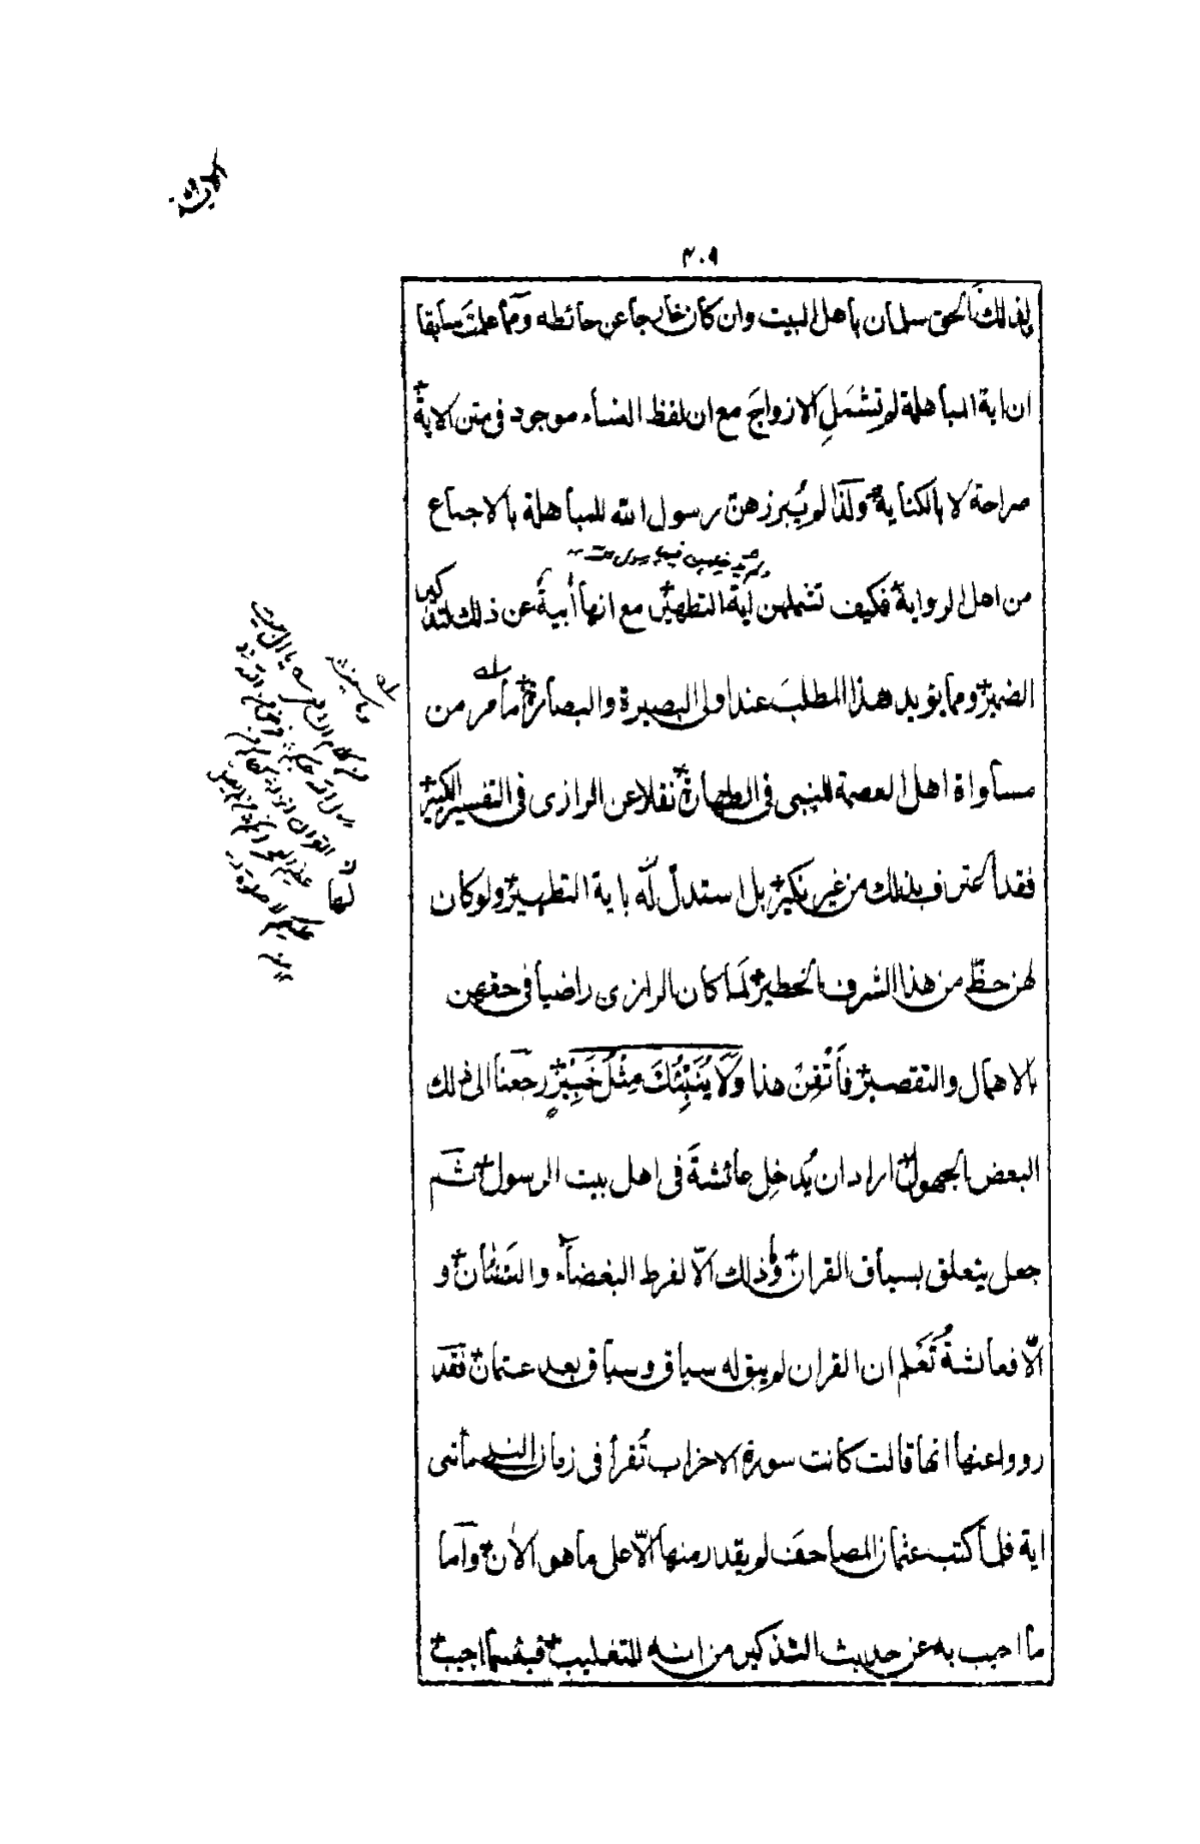 ٣٠٩
ولذلك الحق سلمان باهل البيت وان كان خارجا عن حائطه ومما علمتَ سابقا
ان اية المباهلة لم تشمل الازواجَ مع ان لفظ النساء موجود فى متن الاية
صراحة لا بالكناية ولذا لم يُبرزهن رسول الله للمباهلة بالاجماع
من اهل الرواية فكيف تشملهن اٰية التطهير مع انها اٰبيةٌ عن ذلك لتذكير
الضمير ومما يؤيد هذا المطلبَ عند اولى البصيرة والبصارة ما مر من
مساواة اهل العصمة للنبى فى الطهارة نقلا عن الرازى فى التفسير الكبير
فقد اعترف بذلك من غير نكير بل استدلّ لَه باية التطهير ولو كان
لهن حظّ من هذا الشرف الخطير لَما كان الرازى راضيا فى حقهن
بالاهمال والتقصير فأتْقِنْ هذا وَلَا يُنَبِّئُكَ مِثْلُ خَبِيْرٍ رجعنا الى ذلك
البعض الجهول اراد ان يُدخِل عائشةَ فى اهل بيت الرسول ثم
جعل يتعلق بسياق القران وما ذلك الّا لفرط البغضاء والشنئان و
الّا فعائشةُ تَعْلم ان القران لم يبق له سياق وسباق بعد عثمان فقد
رووا عنها انها قالت كانت سورة الاحزاب تُقرأ فى زمان النبى مأتى
اية فلما كتب عثمان المصاحف لم يقدر منها الّا على ما هو الاٰن واَما
ما اجيب به عن حديث التذكير من انه للتغليب ففيه ما اجيب